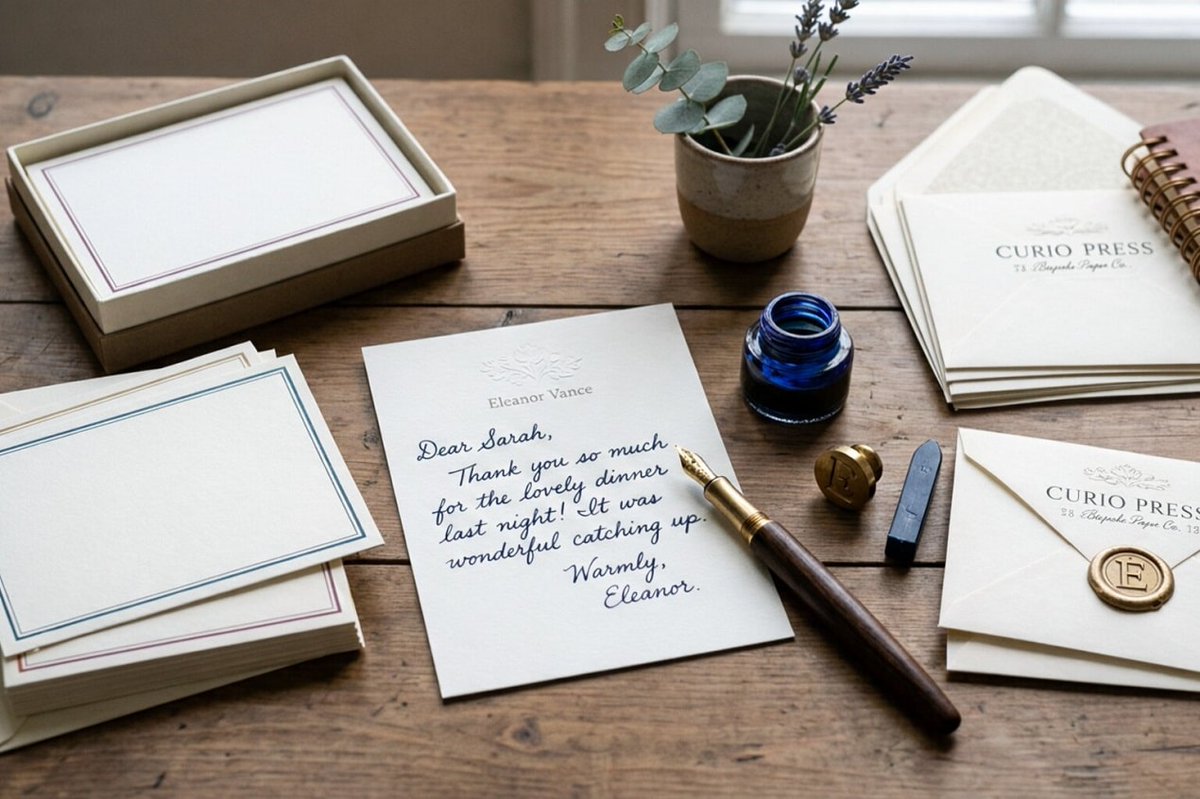 Eleanor Vance
Dear Sarah,
Thank you so much
for the lovely dinner
last night! It was
wonderful catching up.
Warmly,
Eleanor.
CURIO PRESS
Bespoke Paper Co.
E
CURIO PRESS
Co.
E